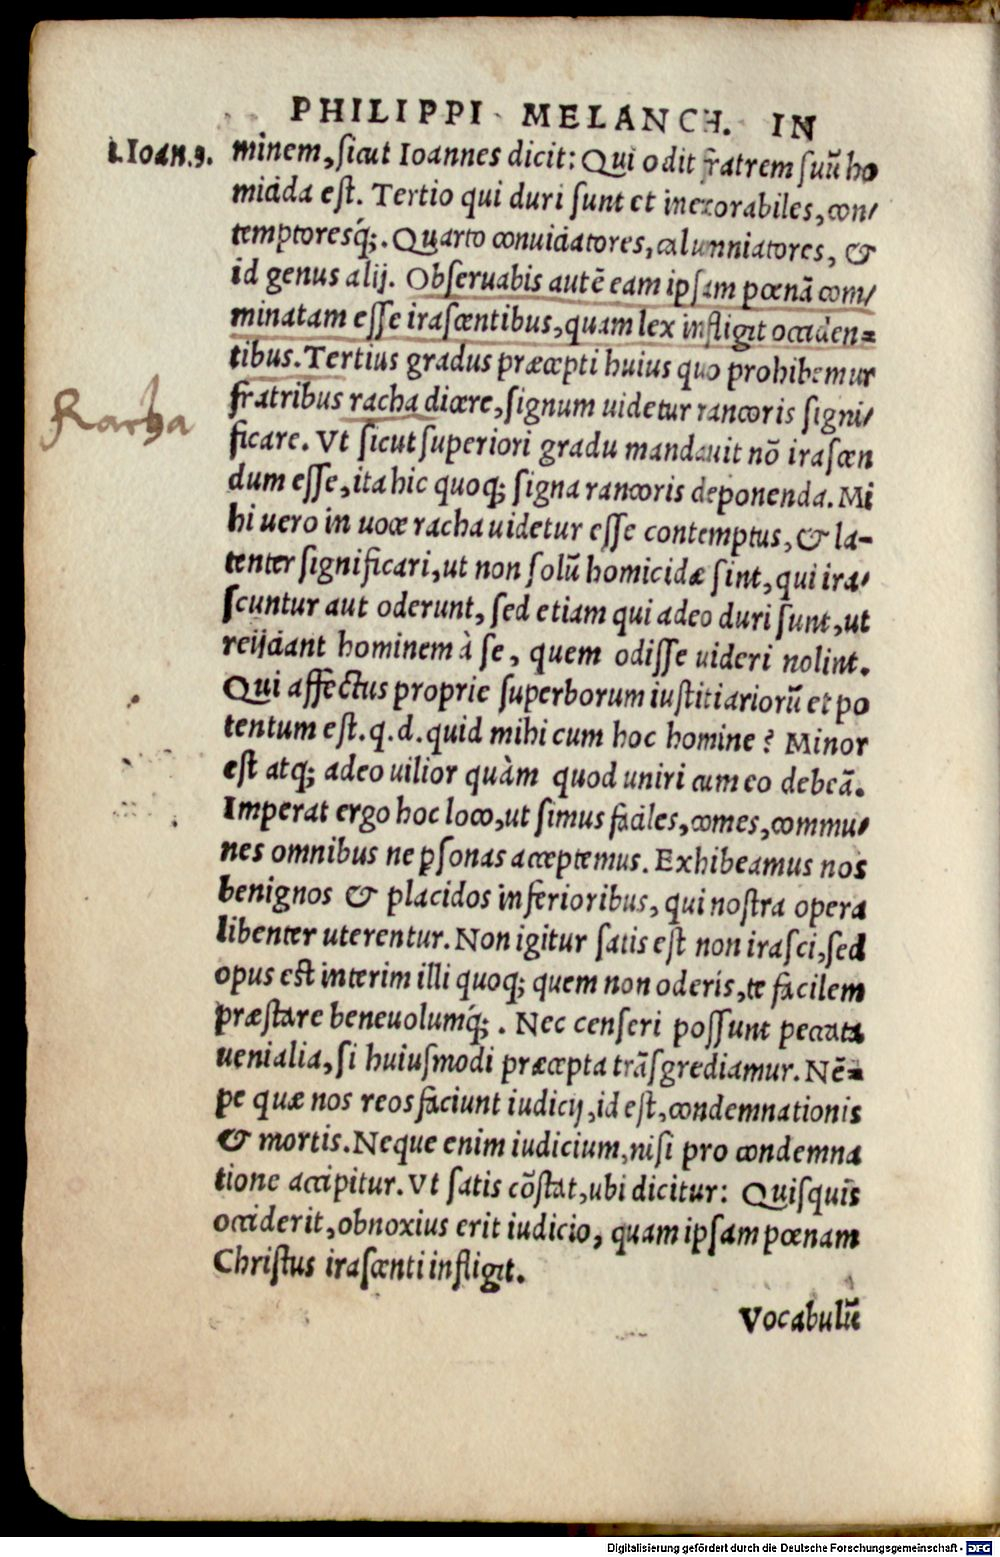 PHILIPPI MELANCH. IN
1. Ioan. 3. minem, sicut Ioannes dicit: Qui odit fratrem suũ ho
micida est. Tertio qui duri sunt et inexorabiles, con/
temptoresq́;. Quarto conuiciatores, calumniatores, &
id genus alij. Obseruabis autē eam ipsam pœnā com/
minatam esse irascentibus, quam lex infligit occiden=
tibus. Tertius gradus præcepti huius quo prohibemur
fratribus racha dicere, signum uidetur rancoris signi/
Racha
ficare. Vt sicut superiori gradu mandauit nō irascen
dum esse, ita hic quoq; signa rancoris deponenda. Mi
hi uero in uoce racha uidetur esse contemptus, & la-
tenter significari, ut non solũ homicidæ sint, qui ira/
scuntur aut oderunt, sed etiam qui adeo duri sunt, ut
reijciant hominem à se, quem odisse uideri nolint.
Qui affectus proprie superborum iustitiariorũ et po
tentum est. q. d. quid mihi cum hoc homine? Minor
est atq; adeo uilior quàm quod uniri cum eo debeā.
Imperat ergo hoc loco, ut simus faciles, comes, commu/
nes omnibus ne ꝑsonas acceptemus. Exhibeamus nos
benignos & placidos inferioribus, qui nostra opera
libenter uterentur. Non igitur satis est non irasci, sed
opus est interim illi quoq; quem non oderis, te facilem
præstare beneuolumq́;. Nec censeri possunt peccata
uenialia, si huiusmodi præcepta trāsgrediamur. Nē=
pe quæ nos reos faciunt iudicij, id est, condemnationis
& mortis. Neque enim iudicium, nisi pro condemna
tione accipitur. Vt satis cōstat, ubi dicitur: Quisquis
occiderit, obnoxius erit iudicio, quam ipsam pœnam
Christus irascenti infligit.
Vocabulũ
Digitalisierung gefördert durch die Deutsche Forschungsgemeinschaft - DFG